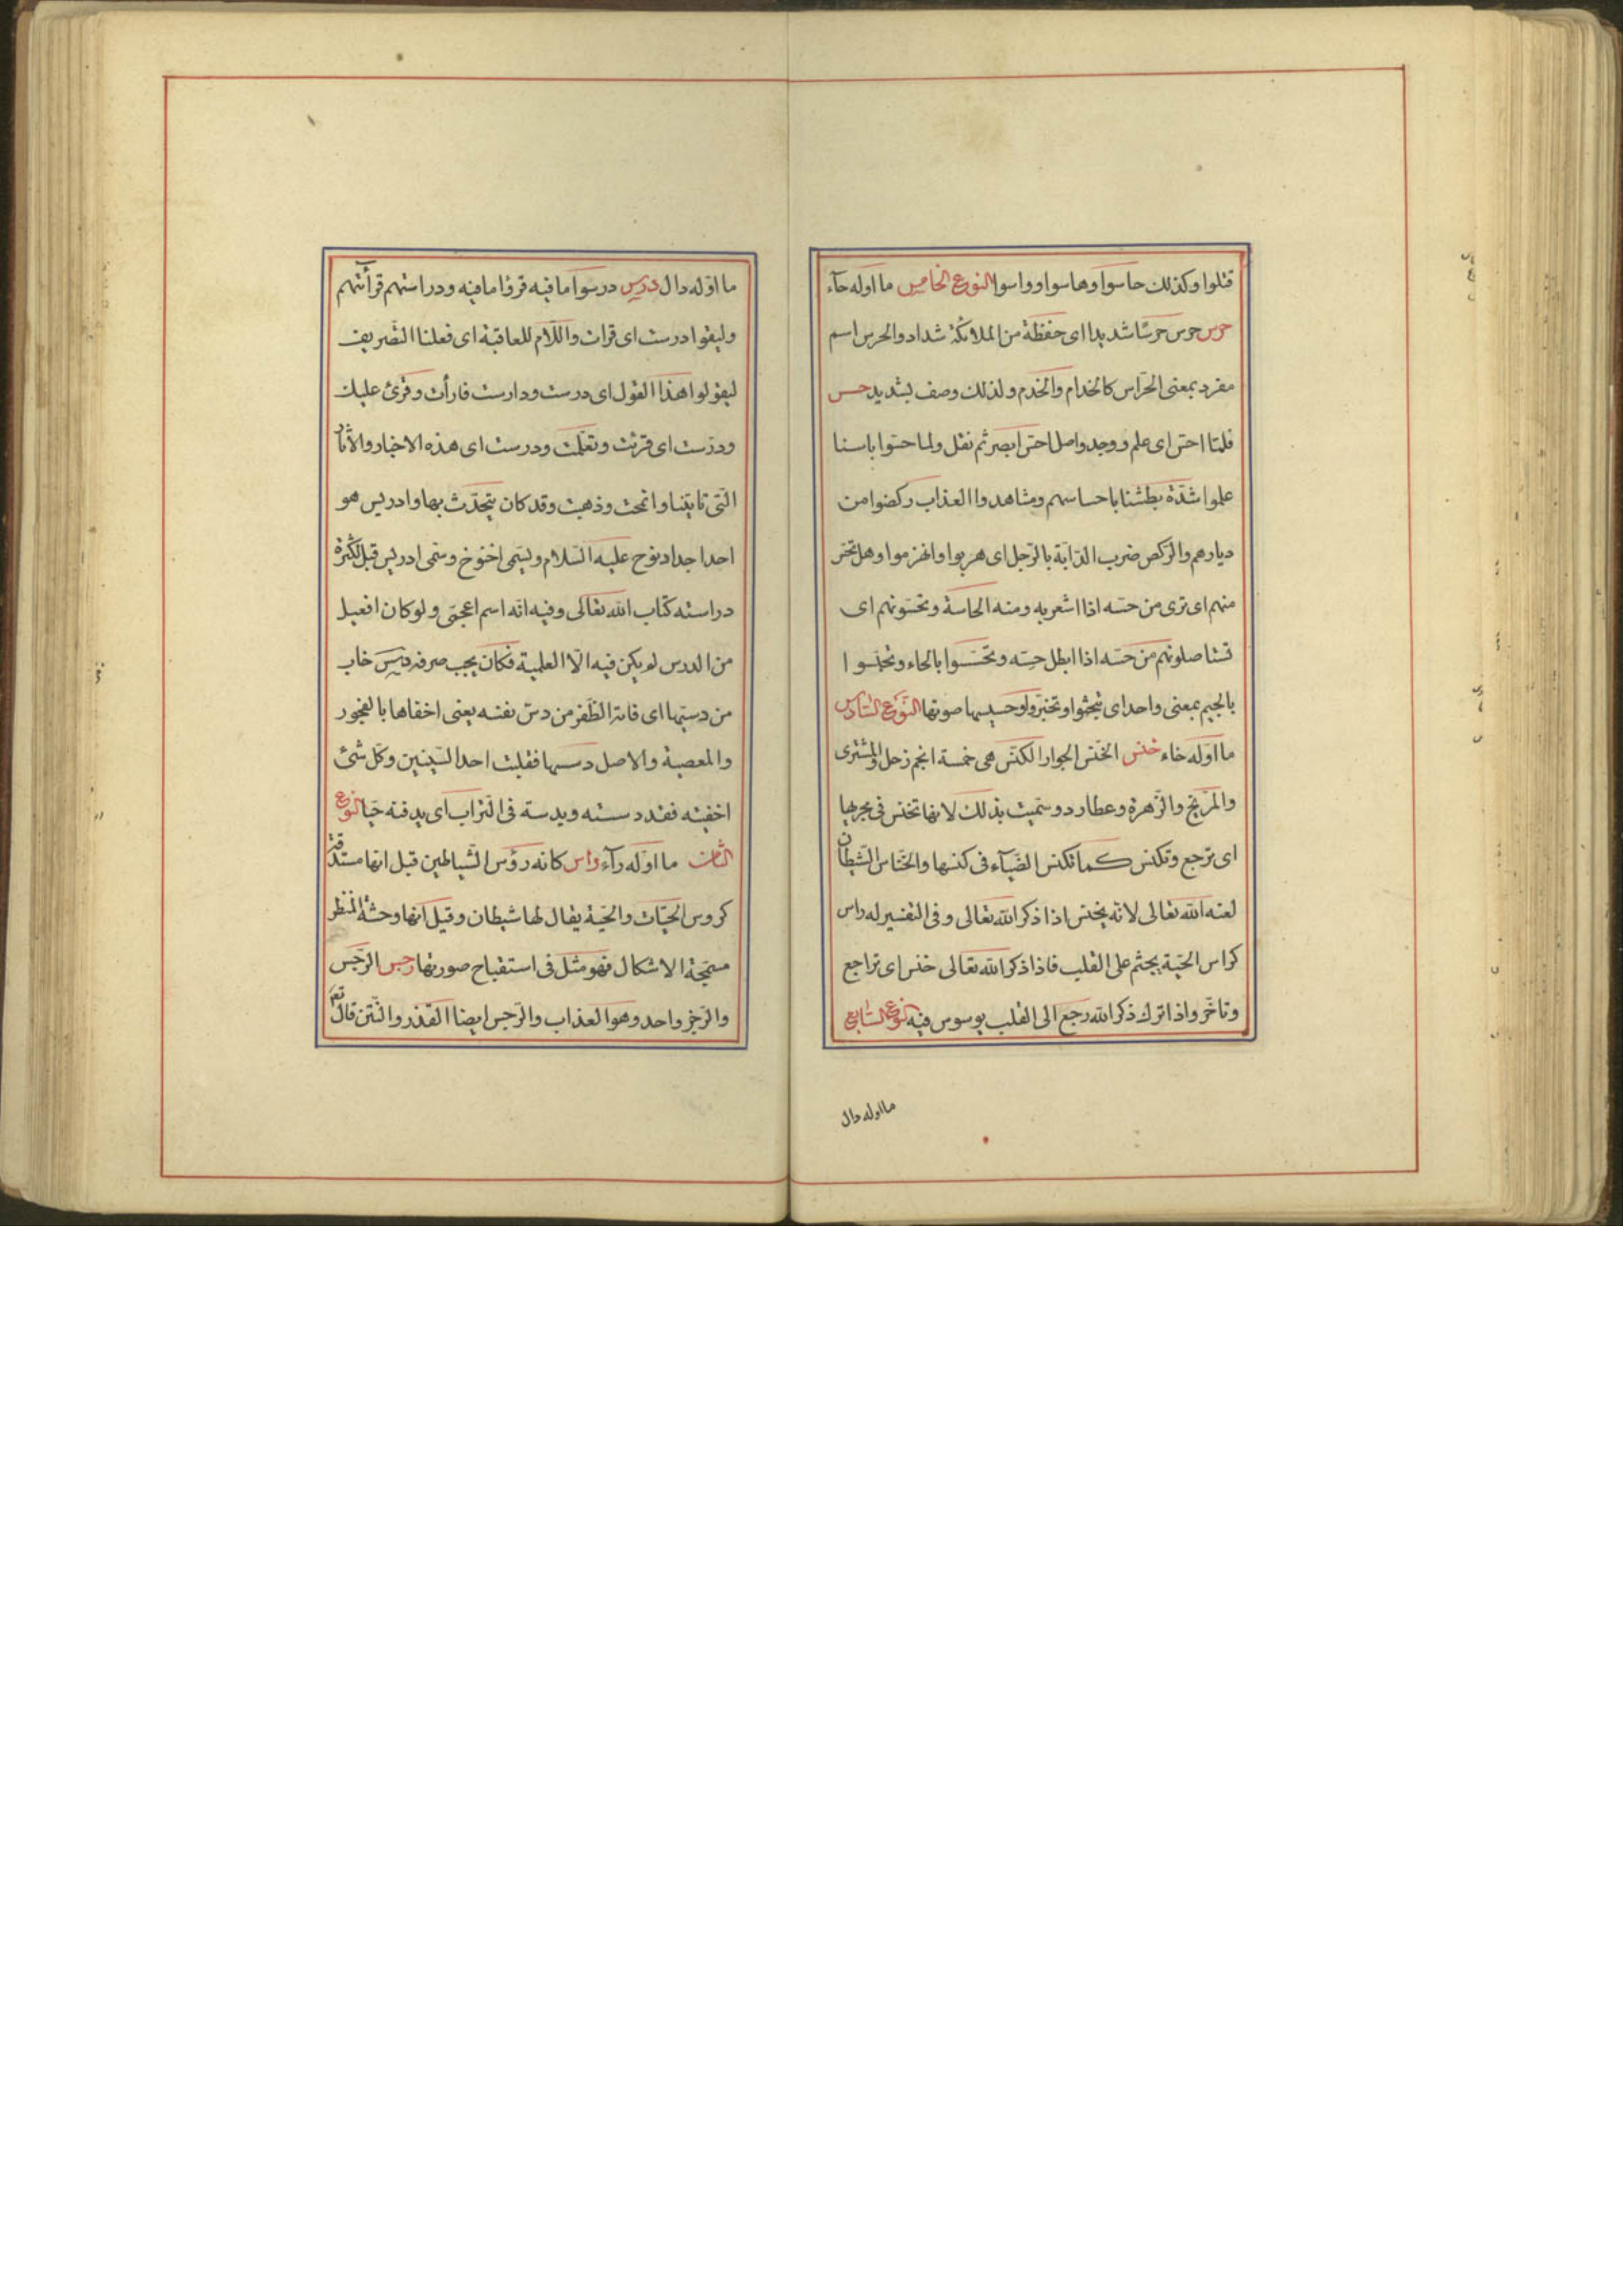 قتلوا وكذلك حاسوا وهاسوا وواسوا النوع الخامس ما اوله حآء
حرس حرس حرسًا شديدا اى حفظة من الملائكة شداد والحرس اسم
مفرد بمعنى الحرّاس كالخدام والخدم ولذلك وصف بشديد حسس
فلمّا احسّ اى علم ووجد واصل احسّ ابصر ثم نقل ولما احسّوا باسنا
علموا شدّة بطشنا باحساسهم ومشاهدوا العذاب ركضوا من
ديارهم والرّكض ضرب الدّابّة بالرّجل اى هربوا وانهزموا وهل تحسّ
منهم اى ترى من حسّه اذا اشعر به ومنه الحاسة وتحسّونهم اى
تستاصلونهم من حسّه اذا ابطل حسّه وتحسّسوا بالحاء وتجسّسوا
بالجيم بمعنى واحد اى تبحثوا وتخبّروا وحسيسها صوتها النّوع السّادس
ما اوّله خاء خنس الخنّس الجوار الكنّس هى خمسة انجم زحل والمشترى
والمرّيخ والزّهرة وعطارد وسمّيت بذلك لانها تخنس فى مجريها
اى ترجع وتكنس كما تكنس الضّبآء فى كنسها والخنّاس الشّيطان
لعنه الله تعالى لانّه يخنس اذا ذكر الله تعالى وفى التفسير له راس
كراس الحيّة يجثم على القلب فاذا ذكر الله تعالى خنس اى تراجع
وتاخّر واذا ترك ذكر الله رجع الى القلب يوسوس فيه النّوع السّابع
ما اوله دال
ما اوّله دال درس درسوا ما فيه قرؤا ما فيه ودراستهم قرآئتهم
وليقولوا درست اى قرات واللّام للعاقبة اى فعلنا التّصريف
ليقولوا هذا القول اى درست ودارست قارأت وقرئ عليك
ودرست اى قرئت وتعلمت ودرست اى هذه الاخبار والآثار
الّتى تاتينا وانمحت وذهبت وقد كان يتحدّث بها وادريس هو
احد اجداد نوح عليه السّلام ويسمى اخنوخ وسمّى ادريس قيل لكثرة
دراسته كتاب الله تعالى وفيه انّه اسم اعجمّى ولو كان افعيل
من الدرس لم يكن فيه الّا العلمية فكان يجب صرفه دسس خاب
من دسّيها اى فاته الظّفر من دسّ نفسه يعنى اخفاها بالفجور
والمعصية والاصل دسسها فقلبت احد السّينين وكلّ شئ
اخفيته فقد دسسته ويدسّه فى التّراب اى يدفنه حيّا النوع
الثامن ما اوّله رآء راس كانه رؤس الشّياطين قيل انها مستدقّة
كروس الحيّات والحيّة يقال لها شيطان وقيل انها وحشة المنظر
سمجة الاشكال فهو مثل فى استقباح صورتها رجس الرّجس
والرّجز واحد وهو العذاب والرّجس ايضا القذر والنّتن قال تعم